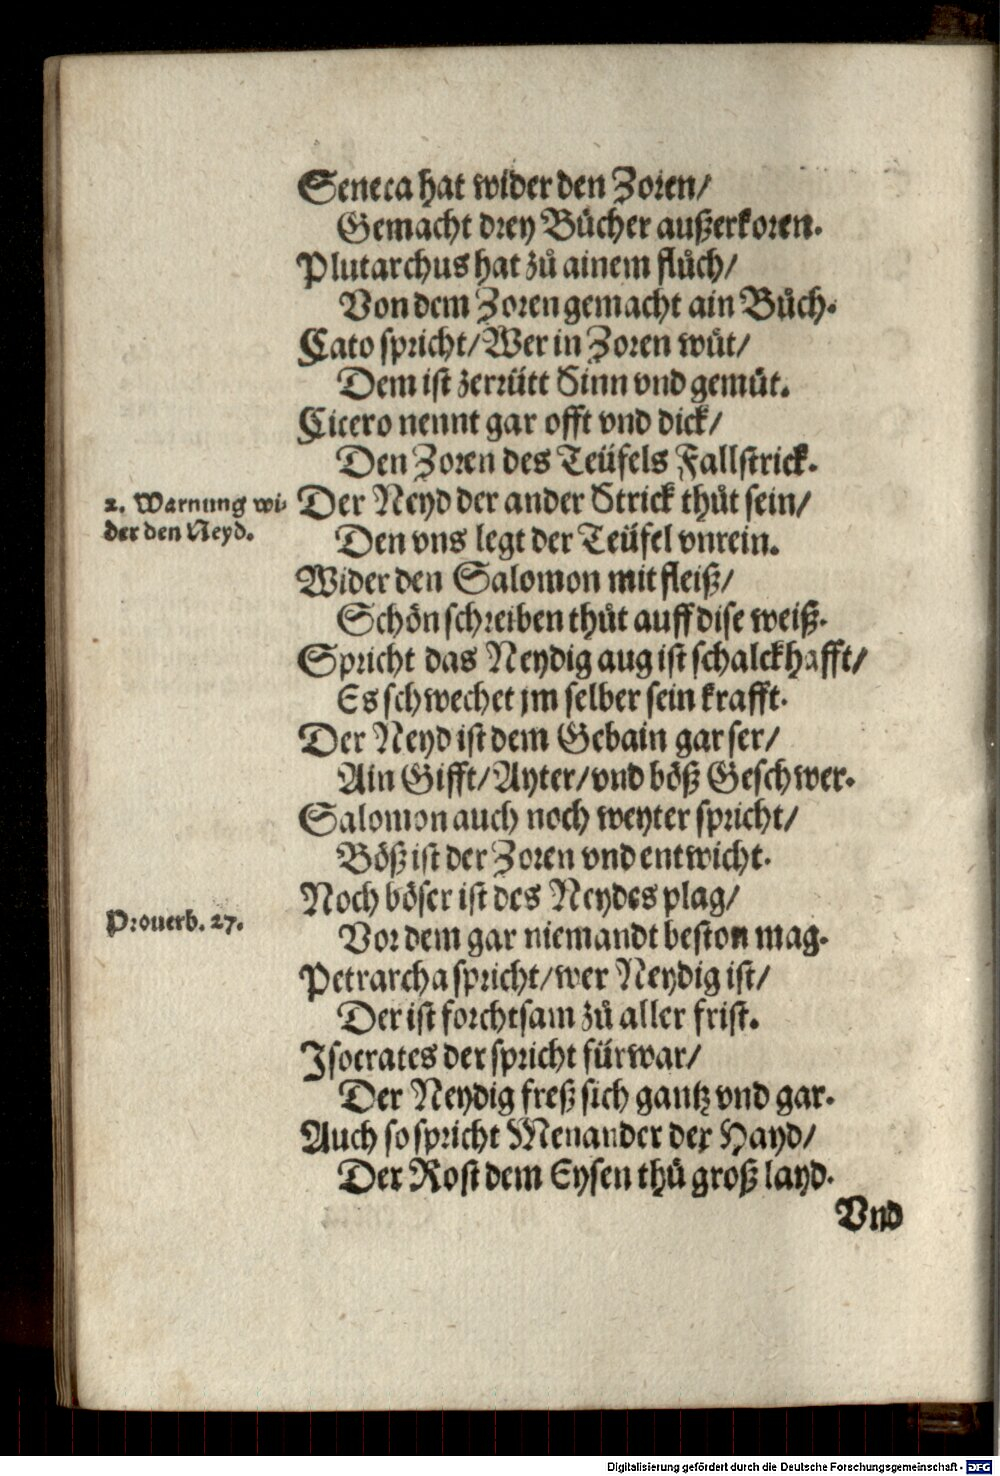 Seneca hat wider den Zoren/
Gemacht drey Bücher außerkoren.
Plutarchus hat zů ainem flůch/
Von dem Zoren gemacht ain Bůch.
Cato spricht/ Wer in Zoren wüt/
Dem ist zerrütt Sinn vnd gemüt.
Cicero nennt gar offt vnd dick/
Den Zoren des Teüfels Fallstrick.
2. Warnung wider den Neyd.
Der Neyd der ander Strick thůt sein/
Den vns legt der Teüfel vnrein.
Wider den Salomon mit fleiß/
Schön schreiben thůt auff dise weiß.
Spricht das Neydig aug ist schalckhafft/
Es schwechet jm selber sein krafft.
Der Neyd ist dem Gebain gar ser/
Ain Gifft/ Ayter/ vnd böß Geschwer.
Salomon auch noch weyter spricht/
Böß ist der Zoren vnd entwicht.
Noch böser ist des Neydes plag/
Prouerb. 27.
Vor dem gar niemandt beston mag.
Petrarcha spricht/ wer Neydig ist/
Der ist forchtsam zů aller frist.
Isocrates der spricht fürwar/
Der Neydig freß sich gantz vnd gar.
Auch so spricht Menander der Hayd/
Der Rost dem Eysen thů groß layd.
Vnd
Digitalisierung gefördert durch die Deutsche Forschungsgemeinschaft - DFG